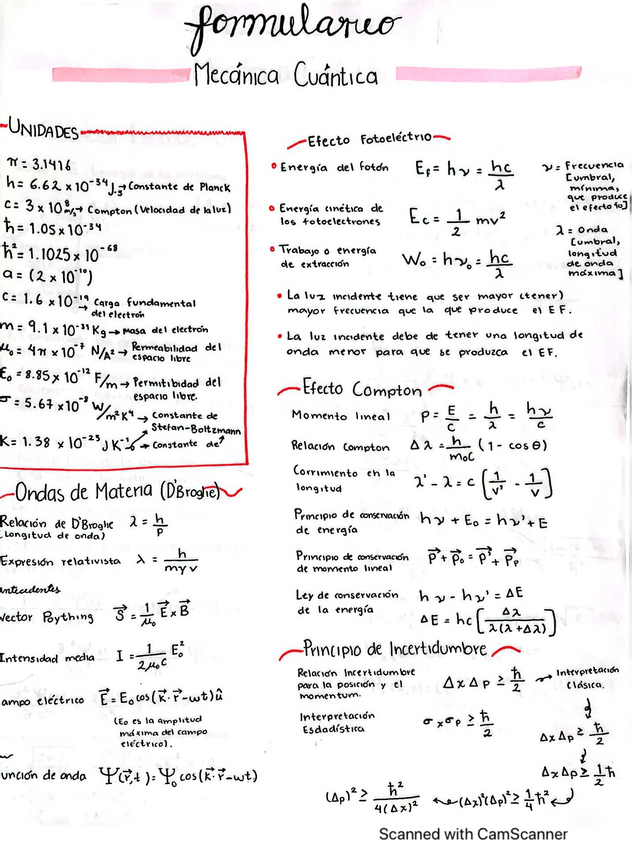 formulareo
Mecánica Cuántica
UNIDADES
π = 3.1416
h = 6.62 x 10⁻³⁴ J·s → Constante de Planck
c = 3 x 10⁸ m/s → Compton (Velocidad de la luz)
ħ = 1.05 x 10⁻³⁴
ħ² = 1.1025 x 10⁻⁶⁸
a = (2 x 10⁻¹⁰)
C = 1.6 x 10⁻¹⁹ → Carga fundamental
del electrón
m = 9.1 x 10⁻³¹ Kg → Masa del electrón
μ₀ = 4π x 10⁻⁷ N/A² → Permeabilidad del
espacio libre
E₀ = 8.85 x 10⁻¹² F/m → Permitibidad del
espacio libre.
σ = 5.67 x 10⁻⁸ W/m²K⁴ → Constante de
Stefan-Boltzmann
K = 1.38 x 10⁻²³ J K⁻¹ → Constante de
Ondas de Materia (D'Broglie)
Relación de D'Broglie λ = h/p
(Longitud de onda)
Expresión relativista λ = h/mγv
antecedentes
Vector Poything S⃗ = 1/μ₀ E⃗ x B⃗
Intensidad media I = 1/2μ₀c E₀²
ampo eléctrico E⃗ = E₀ cos(k⃗·r⃗ - wt) û
(E₀ es la amplitud
máxima del campo
eléctrico).
unción de onda Ψ(r⃗,t) = Ψ₀ cos(k⃗·r⃗ - wt)
Efecto Fotoeléctrio
Energía del fotón E_f = hν = hc/λ
ν = Frecuencia
[umbral,
mínima,
que produce
el efecto fo]
Energía cinética de
los fotoelectrones Ec = 1/2 mv²
λ = Onda
[umbral,
longitud
de onda
máxima]
Trabajo o energía
de extracción W₀ = hν₀ = hc/λ
La luz incidente tiene que ser mayor (tener)
mayor frecuencia que la que produce el EF.
La luz incidente debe de tener una longitud de
onda menor para que se produzca el EF.
Efecto Compton
Momento lineal P = E/c = h/λ = hν/c
Relación Compton Δλ = h/m₀c (1 - cos θ)
Corrimiento en la
longitud λ' - λ = c [1/ν' - 1/ν]
Principio de conservación
de energía hν + E₀ = hν' + E
Principio de conservación
de momento lineal P⃗ + P⃗₀ = P⃗' + P⃗p
Ley de conservación
de la energía hν - hν' = ΔE
ΔE = hc [Δλ/λ(λ+Δλ)]
Principio de Incertidumbre
Relación Incertidumbre
para la posición y el
momentum. Δx Δp ≥ ħ/2 → Interpretación
Clásica.
Interpretación
Esdadística σx σp ≥ ħ/2
Δx Δp ≥ ħ/2
Δx Δp ≥ 1/2 ħ
(Δp)² ≥ ħ²/4(Δx)² ← (Δx)²(Δp)² ≥ 1/4 ħ²
Scanned with CamScanner